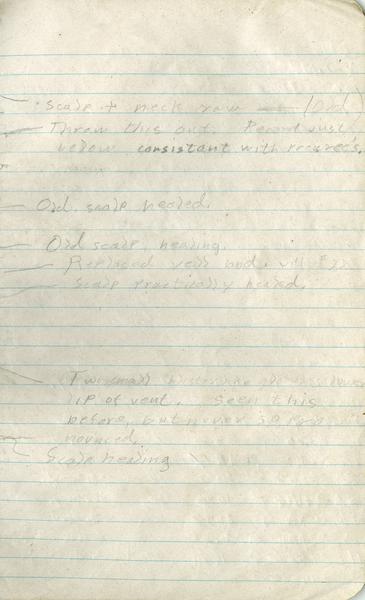 Scalp + neck raw — (Ord.)
Threw this out. Record just
below consistant with records.
Ord. scalp healed.
Ord scalp, healing.
Replaced yell band,
Scalp practically healed.
Two small
lip of vent. Seen this
before, but never so pro-
nounced.
Scalp healing